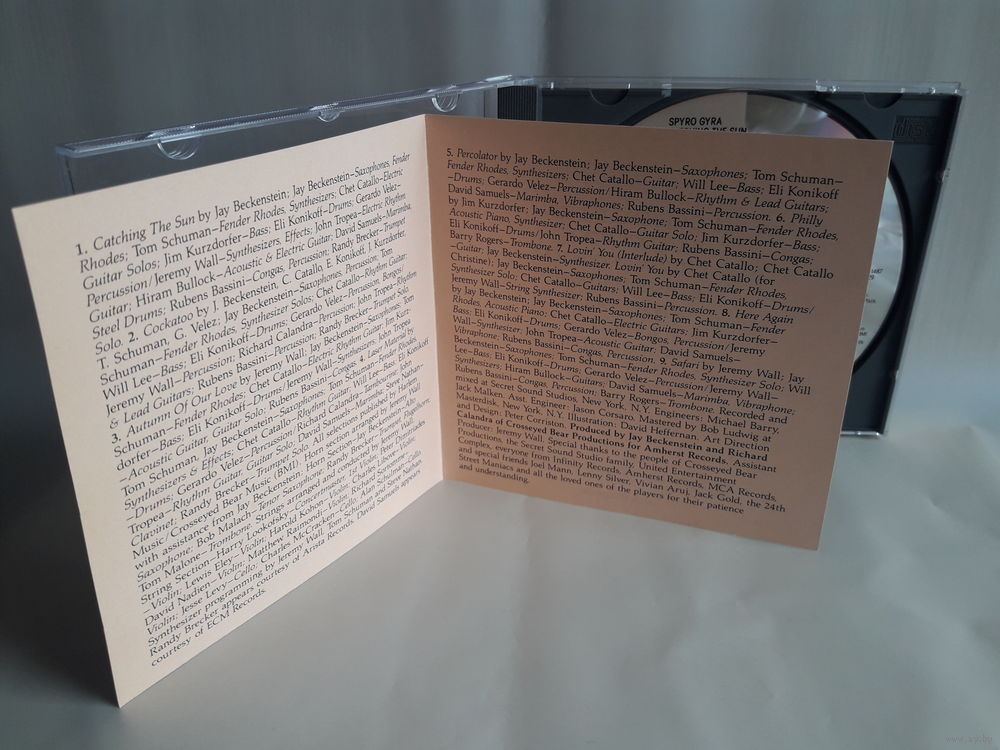 1. Catching The Sun by Jay Beckenstein; Jay Beckenstein–Saxophones, Fender
Rhodes; Tom Schuman–Fender Rhodes, Synthesizers; Chet Catallo–Electric
Guitar Solos; Jim Kurzdorfer–Bass; Eli Konikoff–Drums; Gerardo Velez–
Percussion/Jeremy Wall–Synthesizers, Effects; John Tropea–Electric Rhythm
Guitar; Hiram Bullock–Acoustic & Electric Guitar; David Samuels–Marimba,
Steel Drums; Rubens Bassini–Congas, Percussion; Randy Brecker–Trumpet
Solo. 2. Cockatoo by J. Beckenstein, C. Catallo, E. Konikoff, J. Kurzdorfer,
T. Schuman, G. Velez; Jay Beckenstein–Saxophones, Percussion; Tom
Schuman–Fender Rhodes, Synthesizer Solos; Chet Catallo–Rhythm Guitar;
Will Lee–Bass; Eli Konikoff–Drums; Gerardo Velez–Percussion, Bongos/
Jeremy Wall–Percussion; Richard Calandra–Percussion; John Tropea–Rhythm
& Lead Guitars; Rubens Bassini–Percussion; Randy Brecker–Trumpet Solo.
3. Autumn Of Our Love by Jeremy Wall; Jay Beckenstein–Saxophones; Tom
Schuman–Fender Rhodes; Chet Catallo–Electric Rhythm Guitar; Jim Kurz-
dorfer–Bass; Eli Konikoff–Drums/Jeremy Wall–Synthesizers; John Tropea
–Acoustic Guitar, Guitar Solo; Rubens Bassini–Congas. 4. Laser Material by
Tom Schuman, Jay Beckenstein; Jay Beckenstein–Saxophones; Tom Schuman–
Synthesizers & Effects; Chet Catallo–Rhythm Guitar; Will Lee–Bass; Eli Konikoff
–Drums; Gerardo Velez–Percussion/Richard Calandra–Tambourine; John
Tropea–Rhythm Guitar, Guitar Solo; David Samuels–Marimba; Steve Nathan–
Clavinet; Randy Brecker–Trumpet Solo. All selections published by Harlem
Music/Crosseyed Bear Music (BMI). Horn Section arranged by Jeremy Wall
with assistance from Jay Beckenstein. Horn Section:
Saxophone; Bob Malach–Tenor Saxophone; Randy Brecker
Tom Malone–Trombone. Strings arranged and conducted by Jeremy Wall.
String Section: Harry Lookofsky–Concertmaster, 1st Violin; Peter Dimitriades
–Violin; Lewis Eley–Violin; Harold Kohon–Violin; Charles Libove–Violin;
David Nadien–Violin; Matthew Raimondi–Violin; Richard Sortomme–
Violin; Jesse Levy–Cello; Charles McCracken–Cello; Alan Shulman–Cello.
Synthesizer programming by Jeremy Wall, Tom Schuman and Steve Nathan.
Randy Brecker appears courtesy of Arista Records. David Samuels appears
courtesy of ECM Records.
5. Percolator by Jay Beckenstein; Jay Beckenstein–Saxophones; Tom Schuman–
Fender Rhodes, Synthesizers; Chet Catallo–Guitar; Will Lee–Bass; Eli Konikoff
–Drums; Gerardo Velez–Percussion/Hiram Bullock–Rhythm & Lead Guitars;
David Samuels–Marimba, Vibraphones; Rubens Bassini–Percussion. 6. Philly
by Jim Kurzdorfer; Jay Beckenstein–Saxophone; Tom Schuman–Fender Rhodes,
Acoustic Piano, Synthesizer; Chet Catallo–Guitar Solo; Jim Kurzdorfer–Bass;
Eli Konikoff–Drums/John Tropea–Rhythm Guitar; Rubens Bassini–Congas;
Barry Rogers–Trombone. 7. Lovin' You (Interlude) by Chet Catallo; Chet Catallo
–Guitar; Jay Beckenstein–Synthesizer. Lovin' You by Chet Catallo (for
Christine); Jay Beckenstein–Saxophones; Tom Schuman–Fender Rhodes,
Synthesizer Solo; Chet Catallo–Guitars; Will Lee–Bass; Eli Konikoff–Drums/
Jeremy Wall–String Synthesizer; Rubens Bassini–Percussion. 8. Here Again
by Jay Beckenstein; Jay Beckenstein–Saxophones; Tom Schuman–Fender
Rhodes, Acoustic Piano; Chet Catallo–Electric Guitars; Jim Kurzdorfer–
Bass; Eli Konikoff–Drums; Gerardo Velez–Bongos, Percussion/Jeremy
Wall–Synthesizer; John Tropea–Acoustic Guitar; David Samuels–
Vibraphone; Rubens Bassini–Congas, Percussion. 9. Safari by Jeremy Wall; Jay
Beckenstein–Saxophones; Tom Schuman–Fender Rhodes, Synthesizer Solo; Will
Lee–Bass; Eli Konikoff–Drums; Gerardo Velez–Percussion/Jeremy Wall–
Synthesizers; Hiram Bullock–Guitars; David Samuels–Marimba, Vibraphone;
Rubens Bassini–Congas, Percussion; Barry Rogers–Trombone. Recorded and
mixed at Secret Sound Studios, New York, N.Y. Engineers: Michael Barry,
Jack Malken. Asst. Engineer: Jason Corsaro. Mastered by Bob Ludwig at
Masterdisk, New York, N.Y. Illustration: David Heffernan. Art Direction
and Design: Peter Corriston. Produced by Jay Beckenstein and Richard
Calandra of Crosseyed Bear Productions for Amherst Records. Assistant
Producer: Jeremy Wall. Special thanks to the people of Crosseyed Bear
Productions, the Secret Sound Studio family, United Entertainment
Complex, everyone from Infinity Records, Amherst Records, MCA Records,
and special friends Joel Mann, Lenny Silver, Vivian Aruj, Jack Gold, the 24th
Street Maniacs and all the loved ones of the players for their patience
and understanding.
SPYRO GYRA
THE SUN
disc
www.ay.by